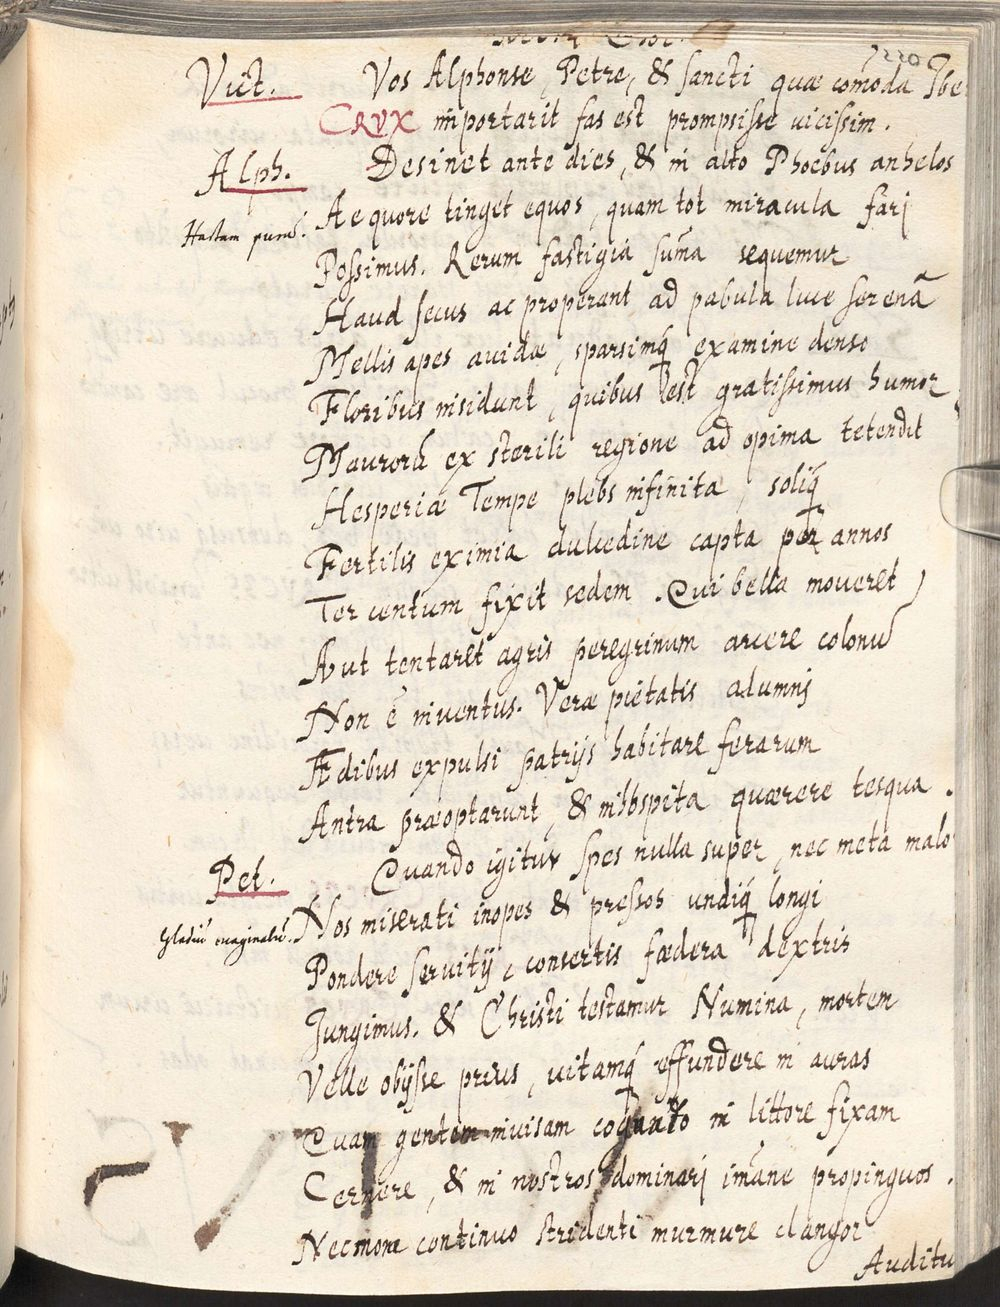 220
Vict. Vos Alphonse, Petre, & sancti quæ com̄oda Ibe
CRVX importarit fas est prompsisse vicissim.
Alph. Desinet ante dies, & in alto Phoebus anhelos
Aequore tinget equos, quam tot miracula farj
Hastam
Possimus. Rerum fastigia sum̄a sequemur
Haud secus ac properant ad pabula luce serenā
Mellis apes auidæ, sparsimq́ examine denso
Floribus insidunt, quibus est gratissimus humor
Maurorū ex sterili regione ad opima tetendit
Hesperiæ Tempe plebs infinita, soliq́
Fertilis eximia dulcedine capta per annos
Ter centum fixit sedem. Cui bella moveret
Aut tentaret agris peregrinum arcere colonū
Non ē inventus. Veræ pietatis alumnj
Ædibus expulsi patrijs habitare ferarum
Antra præoptarunt, & inhospita quærere tesqua.
Pet. Cuando igitur spes nulla super, nec meta malo
Nos miserati inopes & pressos undiq́ longi
Gladiū evaginatū.
Pondere servitij, consertis fœdera dextris
Jungimus. & Christi testamur Numina, mortem
Velle obijsse prius, vitamq́ effundere in auras
Cuam gentem invisam cognato in littore fixam
Cernere, & in nostros dominarj im̄ane propinquos.
Necmora continuo stridenti murmure clangor
Auditu